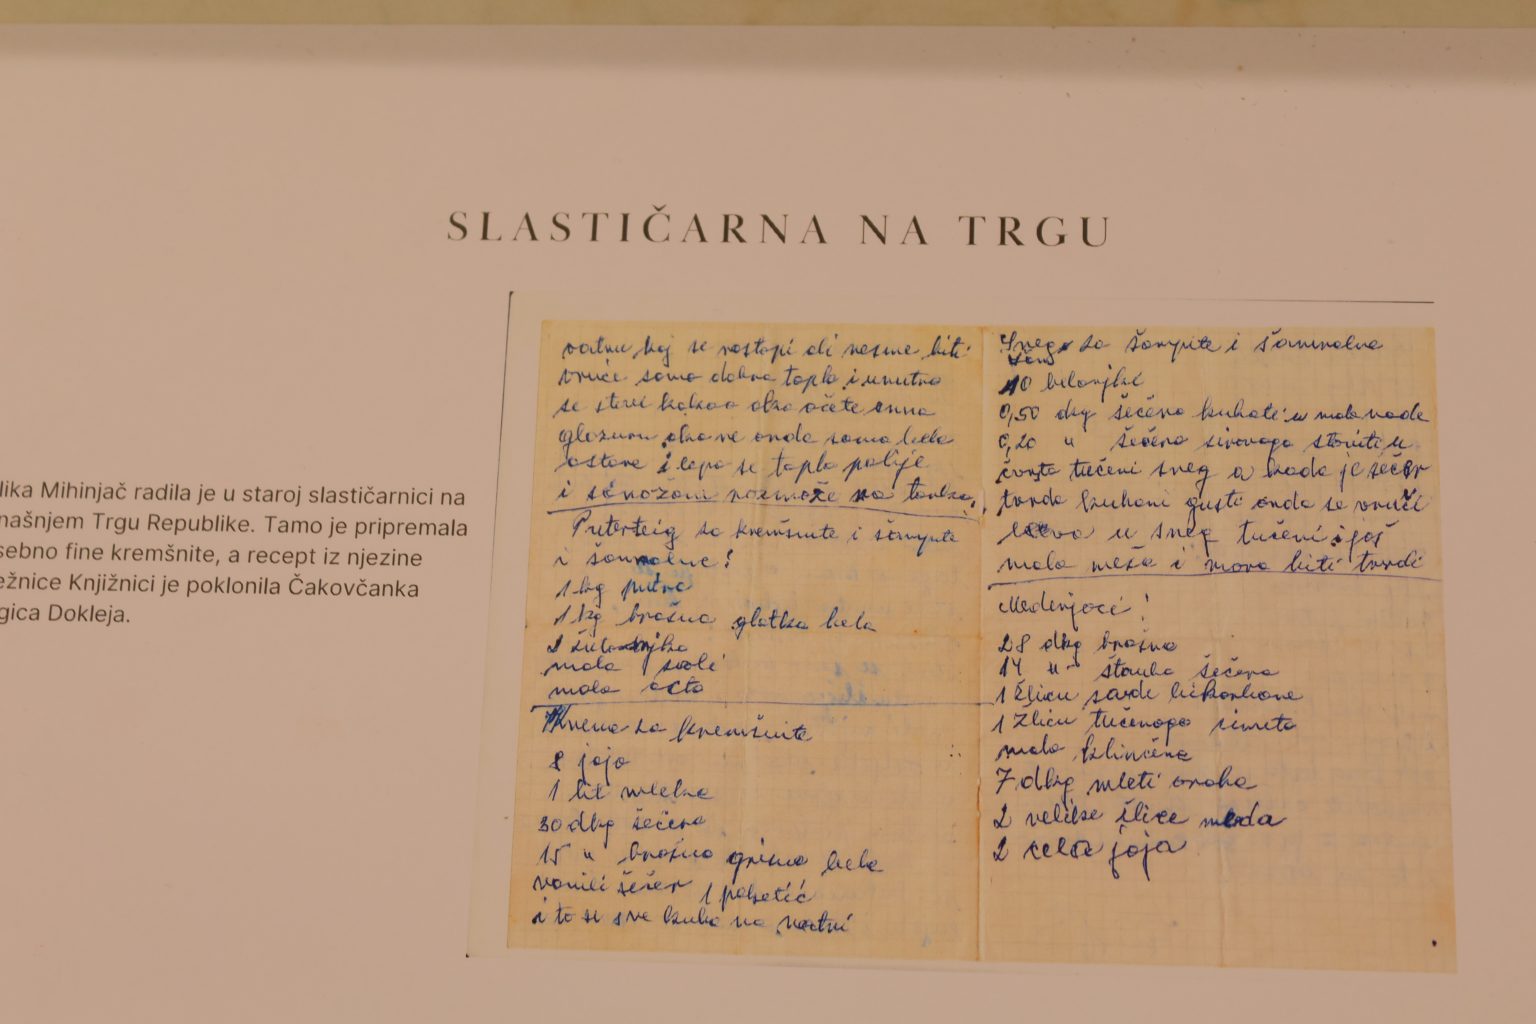 SLASTIČARNA NA TRGU
lika Mihinjač radila je u staroj slastičarnici na
našnjem Trgu Republike. Tamo je pripremala
sebno fine kremšnite, a recept iz njezine
ežnice Knjižnici je poklonila Čakovčanka
gica Dokleja.
vatru koj se rostopi ali nesme biti
vruće samo dobro toplo i unutra
se stevi kakao ako oćete crna
glazuru ako ne onda samo bela
ostane i lepo se toplo polije
i s nožom razmaže na
Puterteig za kremšnite i šampite
i šamrolne!
1 kg putra
1 kg brašna glatko bela
2 žutanjka
malo soli
malo octa
Krema za kremšnite
8 jaja
1 lit mleka
30 dkg šećera
15 " brašna grisno bela
vanili šećer 1 paketić
i to se sve kuha na vatri
Sneg za šampite i šamrolne
10 belanjki
0,50 dkg šećera kuhati u malo vode
0,20 " šećera sirovoga staviti u
čvrsto tučeni sneg a kada je šećer
tvrdo kuhani gusti onda se vrući
u sneg tučeni i još
malo meša i mora biti tvrdi
Medenjaci!
28 dkg brašna
14 " štauba šećera
1 žlicu sode bikarbone
1 žlicu tučenoga cimeta
malo klinčeca
7 dkg mleti oraha
2 velike žlice meda
2 cela jaja